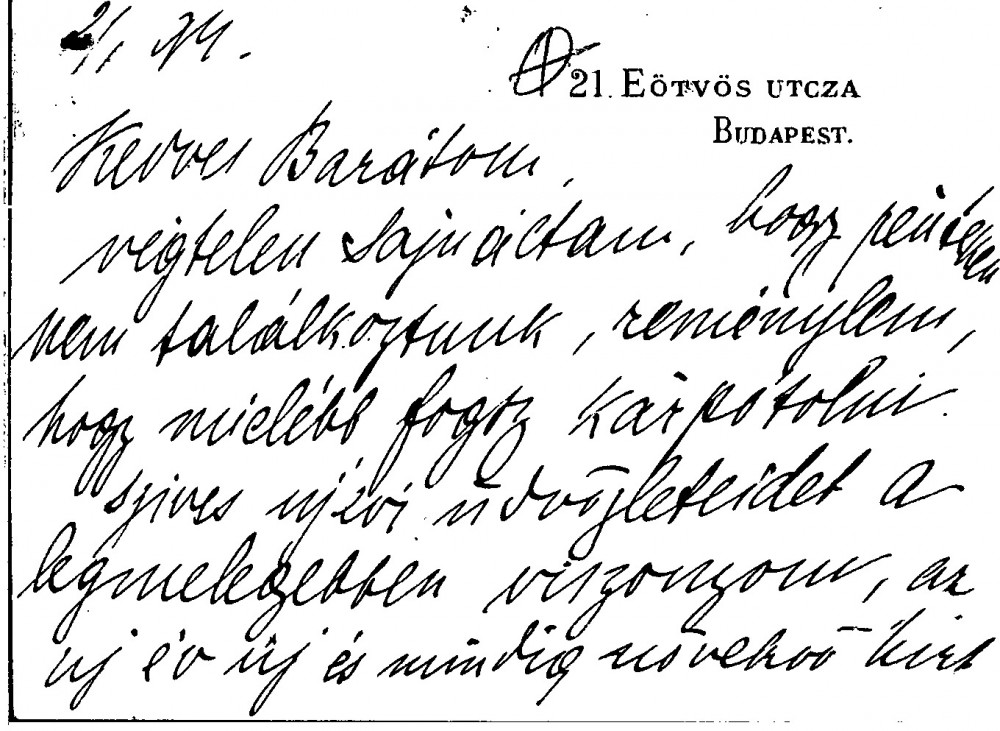 2/1
21. EÖTVÖS UTCZA
BUDAPEST.
Kedves Barátom,
végtelen sajnáltam, hogy pénteken
nem találkoztunk, reménylem,
hogy mielébb fogsz kárpótolni.
Szives ujévi üdvözleteidet a
legmelegebben viszonzom, az
uj év új és mindig növekvő hirt